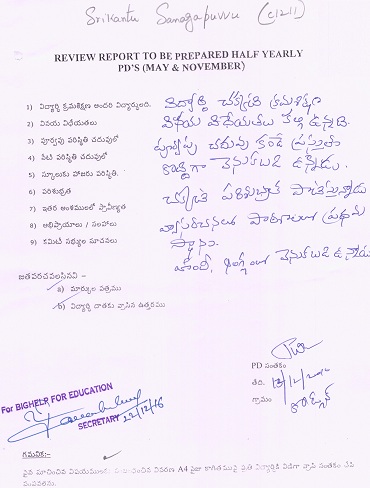 Srikantu Sanagapuvvu (c1211)
REVIEW REPORT TO BE PREPARED HALF YEARLY
PD'S (MAY & NOVEMBER)
1) విద్యార్థి క్రమశిక్షణ అందరి విద్యార్థులది. విద్యార్థి చక్కని క్రమశిక్షణ
2) వినయ విధేయతలు వినయ విధేయతలు కల్గి ఉన్నది.
3) పూర్వపు పరిస్థితి చదువులో పూర్వపు చదువు కంటే ప్రస్తుతం
4) నేటి పరిస్థితి చదువులో కొద్దిగా వెనుకబడి ఉన్నాడు.
5) స్కూలుకు హాజరు పరిస్థితి.
6) పరిశుభ్రత చక్కని పరిశుభ్రత పాటిస్తున్నాడు
7) ఇతర అంశములలో ప్రావీణ్యత వ్యాసరచనలు పాఠాలలో ప్రథమ
8) అభిప్రాయాలు / సలహాలు స్థానం.
9) కమిటి సభ్యుల సూచనలు హిందీ, ఇంగ్లీషులో వెనుకబడి ఉన్నాడు
జతపరచవలసినవి :-
a) మార్కుల పత్రము
b) విద్యార్థి దాతకు వ్రాసిన ఉత్తరము
PD సంతకం
తేది.
గ్రామం
For BIGHELP FOR EDUCATION
SECRETARY 22/12/16
గమనిక:-
పైన సూచించిన విషయములను A4 సైజు కాగితముపై ప్రతి విద్యార్థికి విడిగా వ్రాసి సంతకం చేసి
పంపవలెను.